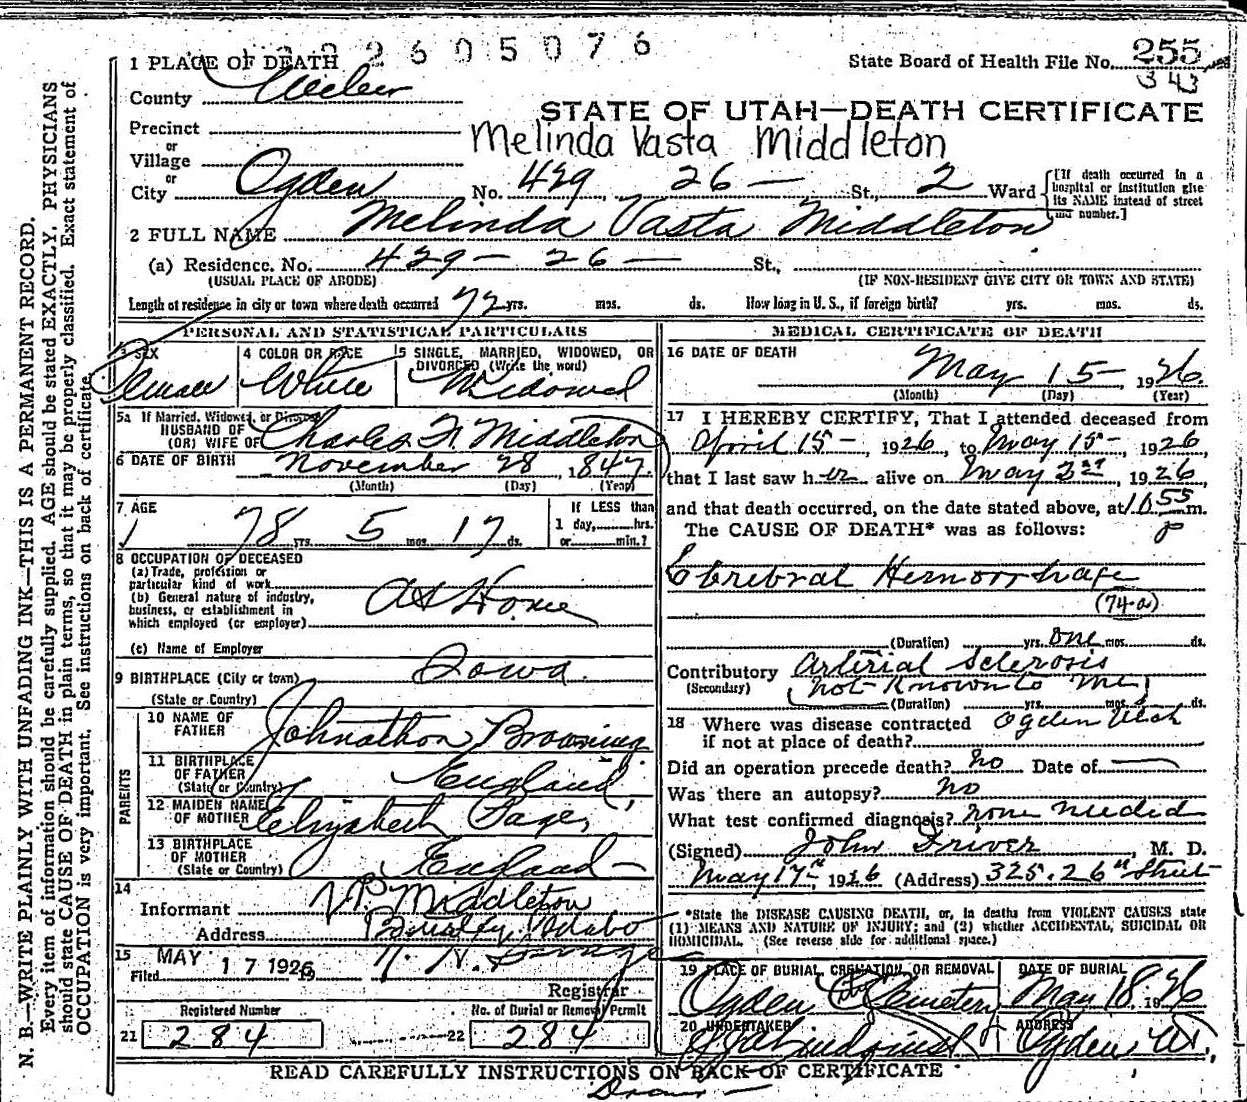 2605076
1 PLACE OF DEATH
State Board of Health File No. 255
343
County Weber
STATE OF UTAH—DEATH CERTIFICATE
Precinct
or
Melinda Vasta Middleton
Village
or
City Ogden No. 429 26 — St., 2 Ward
[If death occurred in a hospital or institution give its NAME instead of street and number.]
2 FULL NAME Melinda Vasta Middleton
(a) Residence. No. 429 — 26 — St.,
(USUAL PLACE OF ABODE) (IF NON-RESIDENT GIVE CITY OR TOWN AND STATE)
Length of residence in city or town where death occurred 72 yrs. mos. ds. How long in U. S., if foreign birth? yrs. mos. ds.
PERSONAL AND STATISTICAL PARTICULARS
3 SEX
Female
4 COLOR OR RACE
White
5 SINGLE, MARRIED, WIDOWED, OR
DIVORCED (Write the word)
Widowed
5a If Married, Widowed, or Divorced
HUSBAND OF
(OR) WIFE OF Charles F. Middleton
6 DATE OF BIRTH November 28, 1847.
(Month) (Day) (Year)
7 AGE
78 yrs. 5 mos. 17 ds.
If LESS than
1 day, hrs.
or min.?
8 OCCUPATION OF DECEASED
(a) Trade, profession or
particular kind of work
(b) General nature of industry,
business, or establishment in
which employed (or employer)
At Home
(c) Name of Employer
9 BIRTHPLACE (City or town) Iowa.
(State or Country)
PARENTS
10 NAME OF
FATHER Johnathon Browning
11 BIRTHPLACE
OF FATHER
(State or Country) England,
12 MAIDEN NAME
OF MOTHER Elizabeth Page,
13 BIRTHPLACE
OF MOTHER
(State or Country) England —
14
Informant Middleton
Address Idaho
15 MAY 17 1926
Filed
Registrar
Registered Number
21 284
No. of Burial or Removal Permit
22 284
MEDICAL CERTIFICATE OF DEATH
16 DATE OF DEATH
May 15, 1926.
(Month) (Day) (Year)
17 I HEREBY CERTIFY, That I attended deceased from
April 15 —, 1926, to May 15 —, 1926,
that I last saw her alive on May, 1926,
and that death occurred, on the date stated above, at 10 55 m.
The CAUSE OF DEATH* was as follows: p
Cerebral Hemorrhage
(74-a)
(Duration) yrs. one mos. ds.
Contributory Arterial Sclerosis
(Secondary) (not known to me)
(Duration) yrs. mos. ds.
18 Where was disease contracted Ogden Utah
if not at place of death?
Did an operation precede death? No Date of —
Was there an autopsy? no
What test confirmed diagnosis? none needed
(Signed) John Driver, M. D.
May 17th, 1926 (Address) 325. 26th Street
*State the DISEASE CAUSING DEATH, or, in deaths from VIOLENT CAUSES state
(1) MEANS AND NATURE OF INJURY; and (2) whether ACCIDENTAL, SUICIDAL OR
HOMICIDAL. (See reverse side for additional space.)
19 PLACE OF BURIAL, CREMATION, OR REMOVAL
Ogden City Cemetery
DATE OF BURIAL
May 18, 1926
20 UNDERTAKER
Lindquist
ADDRESS
Ogden Ut,
READ CAREFULLY INSTRUCTIONS ON BACK OF CERTIFICATE
N. B.—WRITE PLAINLY WITH UNFADING INK—THIS IS A PERMANENT RECORD.
Every item of information should be carefully supplied. AGE should be stated EXACTLY. PHYSICIANS
should state CAUSE OF DEATH in plain terms, so that it may be properly classified. Exact statement of
OCCUPATION is very important. See instructions on back of certificate.